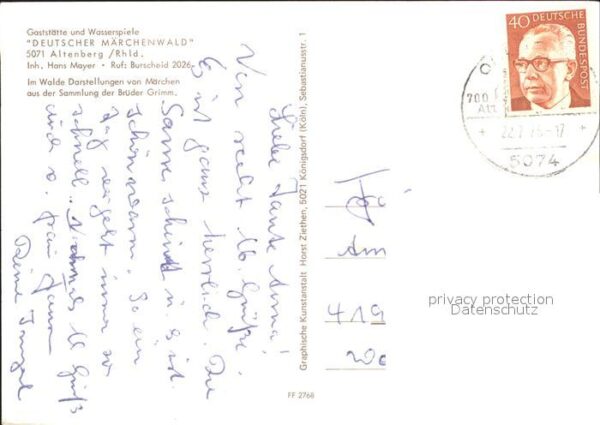 Gaststätte und Wasserspiele
"DEUTSCHER MÄRCHENWALD"
5071 Altenberg /Rhld.
Inh. Hans Mayer • Ruf: Burscheid 2026
Im Walde Darstellungen von Märchen
aus der Sammlung der Brüder Grimm.
Liebe Tante Anna!
Von recht lb. Grüße.
Es ist ganz herrlich. Die
Sonne scheint u. es ist
schön warm. So ein
Tag vergeht immer so
schnell. Nochmals lb Grüß
auch a. Frau
Deine
Graphische Kunstanstalt Horst Ziethen, 5021 Königsdorf (Köln), Sebastianusstr. 1
FF 2768
40 DEUTSCHE
BUNDESPOST
700
22.7.75-17
5074
Am
419
privacy protection
Datenschutz